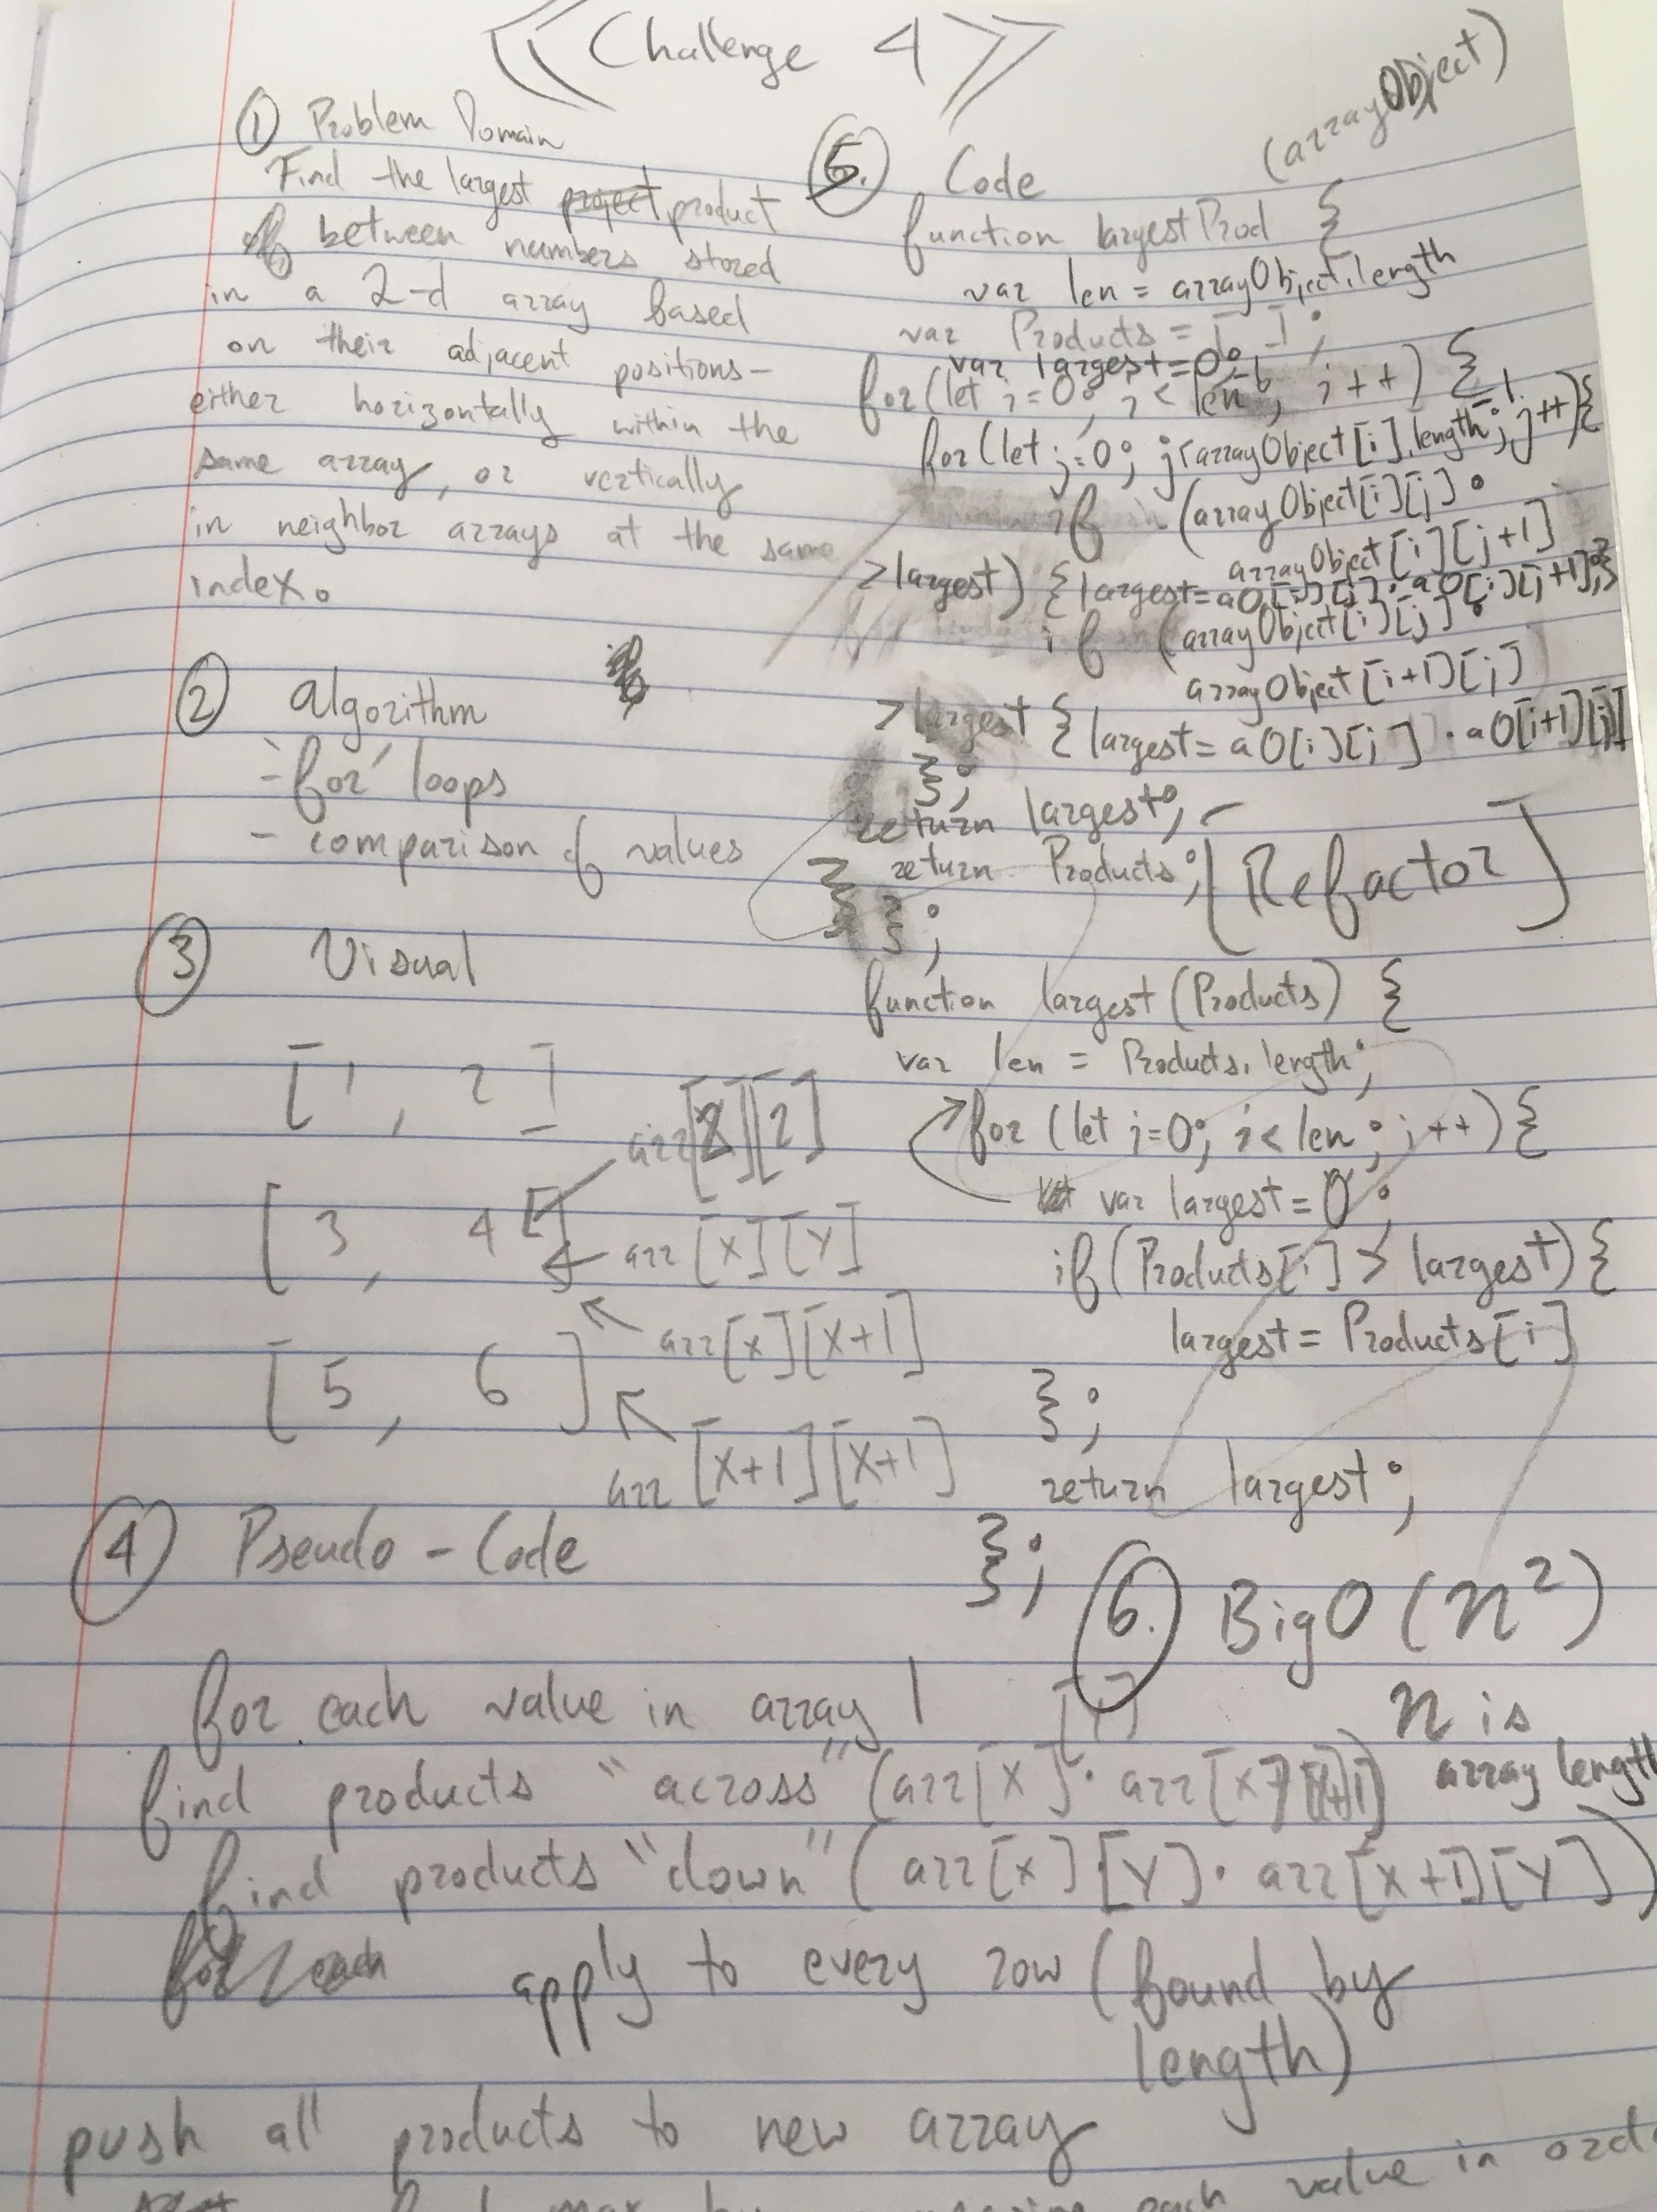 << Challenge 4 >>
① Problem Domain
Find the largest project product
between numbers stored
in a 2-d array based
on their adjacent positions-
either horizontally within the
same array, or vertically
in neighbor arrays at the same
index.
② algorithm
- 'for' loops
- comparison of values
③ Visual
[1, 2]
arr[2][2]
[3, 4]
arr[x][y]
arr[x][x+1]
[5, 6]
arr[x+1][x+1]
④ Pseudo-Code
for each value in array 1
find products "across" (arr[x][y] · arr[x][y+1])
find products "down" (arr[x][y] · arr[x+1][y])
for each apply to every row (bound by
length)
push all products to new array
each value in
5. Code
(arrayObject)
function largestProd {
var len = arrayObject.length
var Products = [ ];
var largest=0;
for(let i=0; i< len-1; i++) {
for(let j=0; j<arrayObject[i].length-1; j++){
if (arrayObject[i][j] ·
arrayObject[i][j+1]
>largest) {largest=aO[i][j] · aO[i][j+1];}
if (arrayObject[i][j] ·
arrayObject[i+1][j]
>largest {largest= aO[i][j] · aO[i+1][j]
};
return largest;
return Products; [Refactor]
} };
function largest(Products) {
var len = Products.length;
for (let i=0; i< len; i++){
var largest=0;
if(Products[i] > largest){
largest= Products[i]
};
return largest;
};
6. BigO(n²)
n is
array length